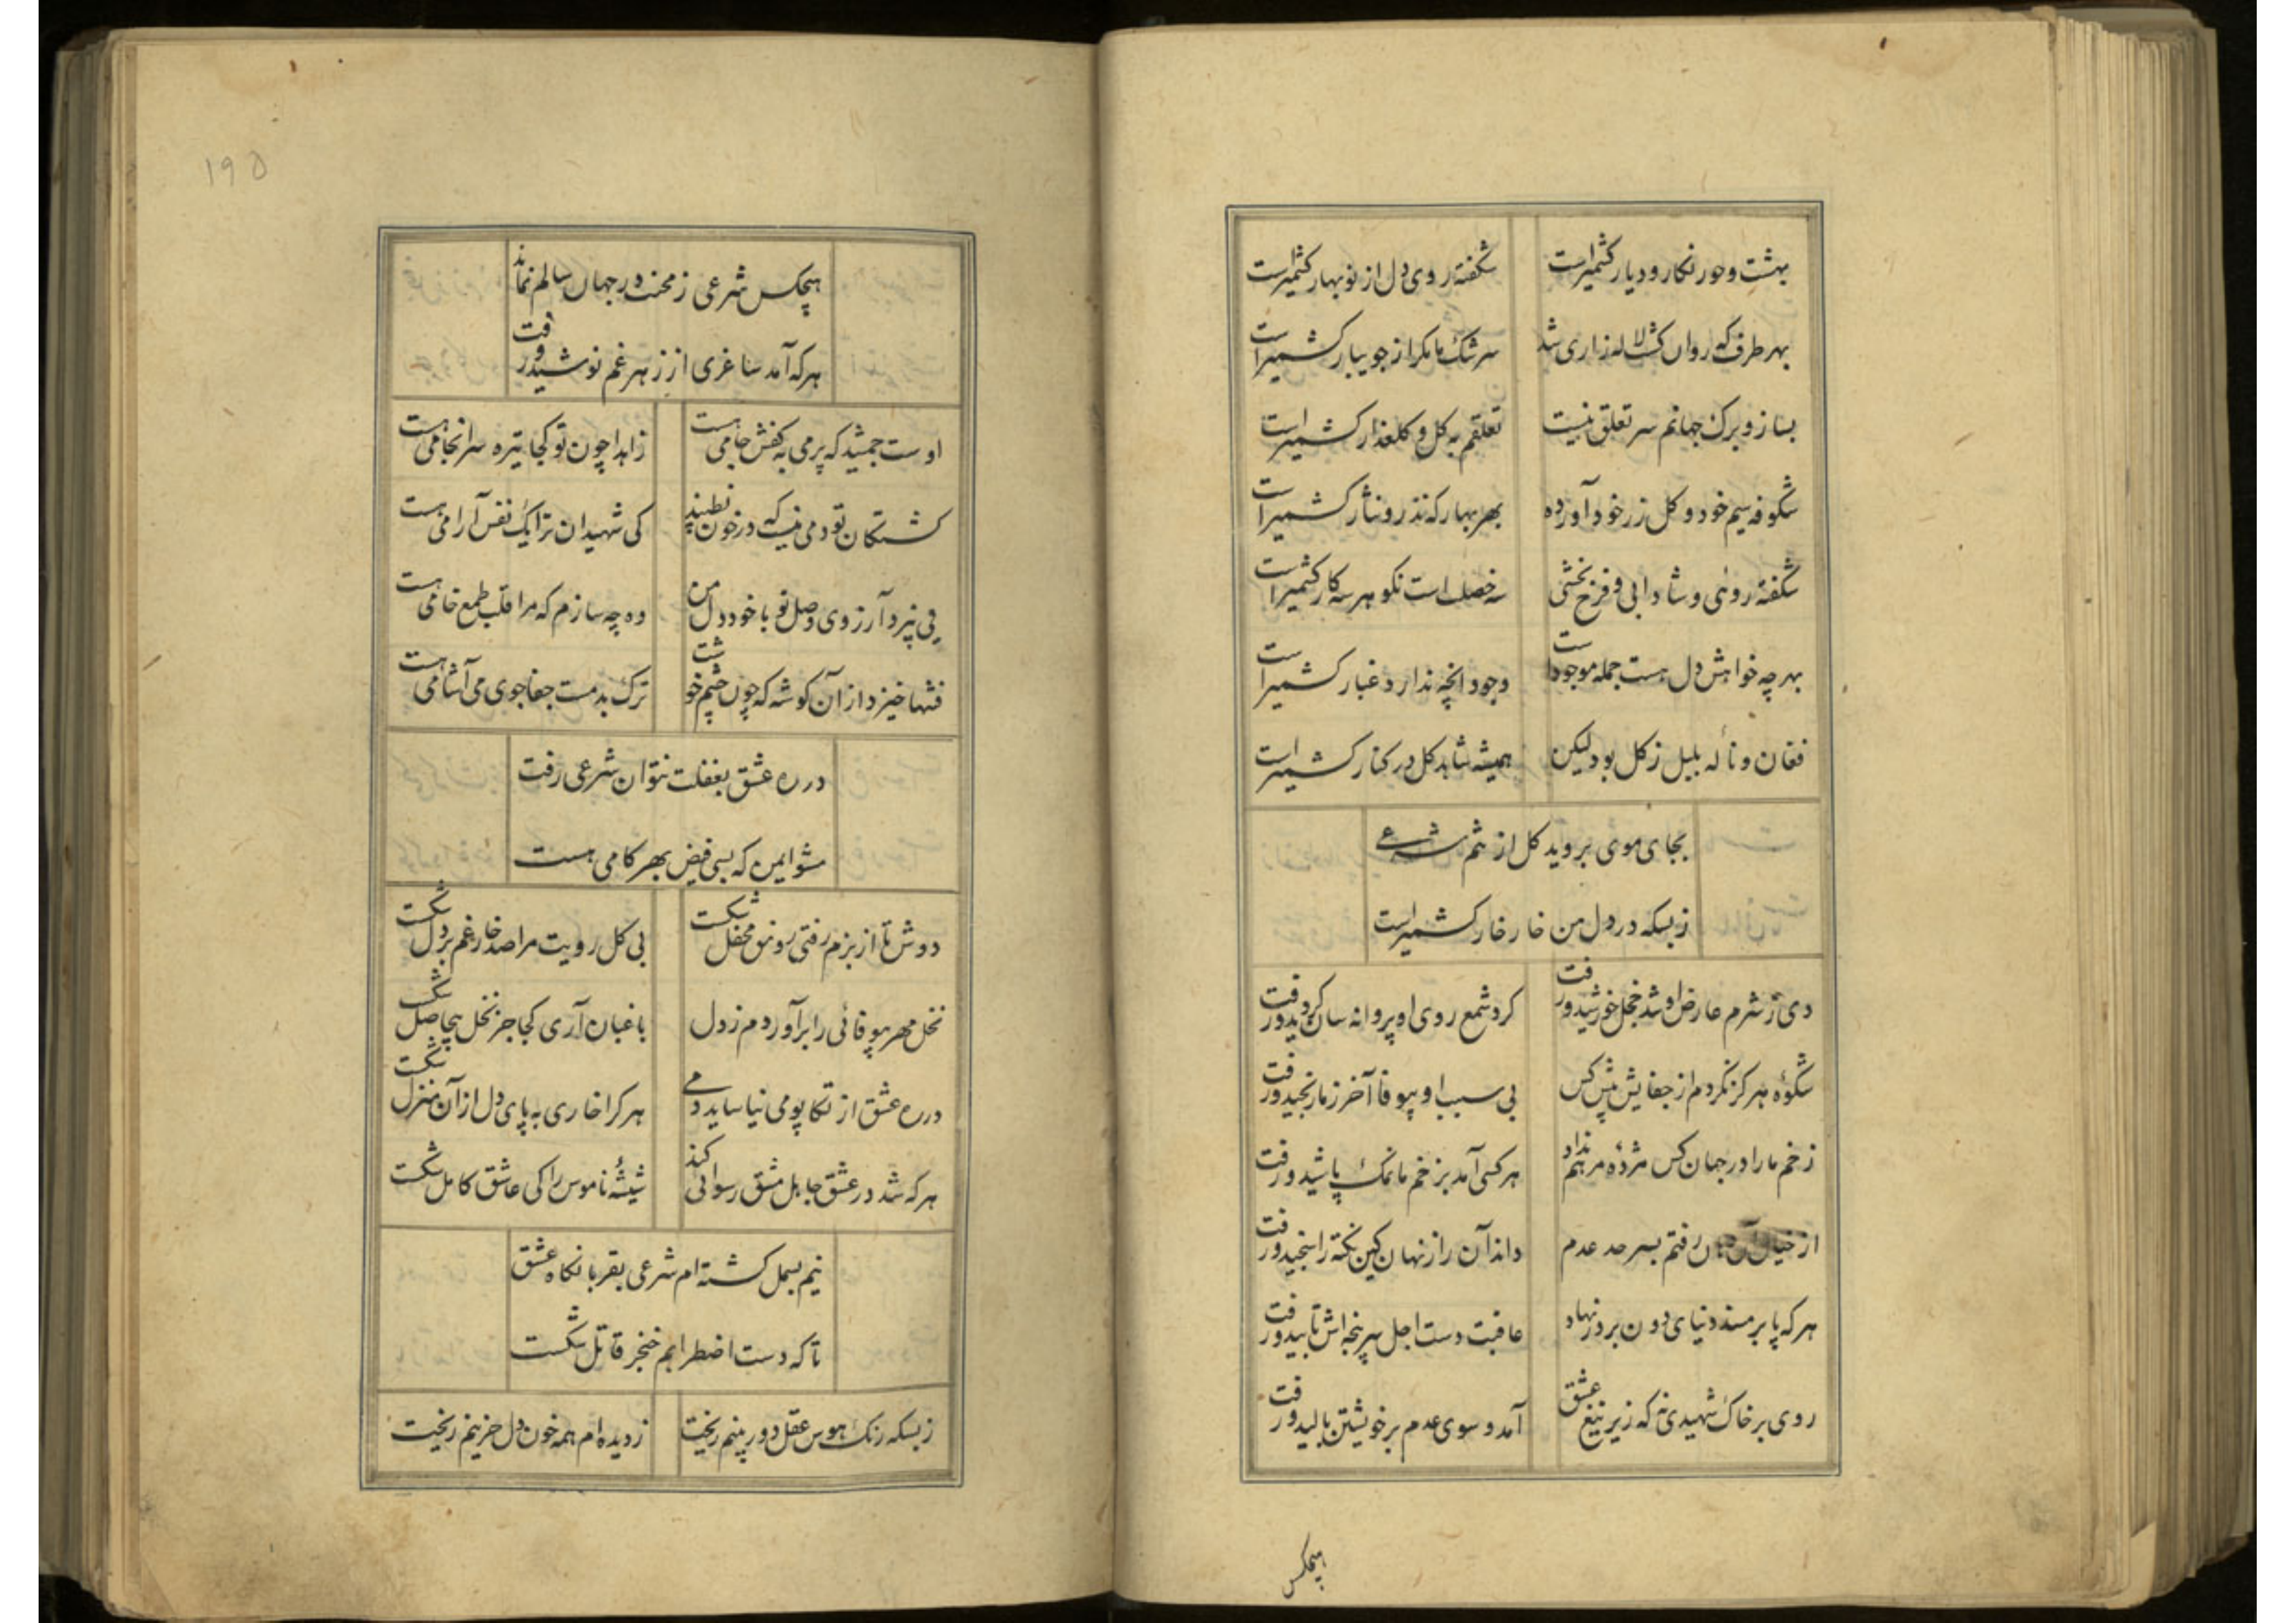 بهشت و حور نکار و دیار کشمیر است
شکفته روی دل از نوبهار کشمیر است
بهر طرف که روان کشت لاله زاری شد
سرشک ما مکر از جویبار کشمیر است
بساز و برک جهانم سر تعلق نیست
تعلقم به کل و کلعذار کشمیر است
شکوفه سیم خود و کل زر خود آورده
بهر بهار که نذر و نثار کشمیر است
شکفته روئی و شادابی و فرح بخشی
سه خصلت است نکو هر سه کار کشمیر است
بهر چه خواهش دل هست جمله موجود است
وجود انچه ندارد غبار کشمیر است
فغان و ناله بلبل ز کل بود لیکن
همیشه شاهد کل در کنار کشمیر است
بجای موی بروید کل از تنم شرعی
زبسکه در دل من خار خار کشمیر است
دی ز شرم عارض او شد خجل خورشید و رفت
کرد شمع روی او پروانه سان کردید و رفت
شکوه هرکز نکردم از جفایش پیش کس
بی سبب او بیوفا آخر ز ما رنجید و رفت
زخم ما را در جهان کس مژده مرهم نداد
هر کسی آمد بزخم ما نمک پاشید و رفت
از خیال آن دهان رفتم بسرحد عدم
داند آن راز نهان کین نکته را سنجید و رفت
هر که پا بر مسند دنیای دون پرور نهاد
عاقبت دست اجل سرپنجه اش تابید و رفت
روی بر خاک شهیدی نه که زیر تیغ عشق
آمد و سوی عدم بر خویشتن بالید و رفت
هیچکس
۱۹۵
هیچکس شرعی ز محنت در جهان سالم نماند
هر که آمد ساغری از زهر غم نوشید و رفت
اوست جمشید که پر می به کفش جامی هست
زاهدا چون تو کجا تیره سرانجامی هست
کشتکان تو دمی نیست که در خون نطپند
کی شهیدان ترا یک نفس آرامی هست
می پزد آرزوی وصل تو با خود دل من
وه چه سازم که مرا قلب طمع خامی هست
فتنها خیزد از آن کوشه که چون چشم خوشت
ترک بدمست جفاجوی می آشامی هست
در ره عشق بغفلت نتوان شرعی رفت
مشو ایمن که بسی فیض بهر کامی هست
دوش تا از بزم رفتی رونق محفل شکست
بی کل رویت مرا صد خار غم بر دل شکست
نخل مهر بیوفائی را برآوردم ز دل
باغبان آری کجا جز نخل بیحاصل شکست
در ره عشق از تکاپو می نیاساید دمی
هر کرا خاری به پای دل از آن منزل شکست
هر که شد در عشق جاهل مشق رسوائی کند
شیشه ناموس را کی عاشق کامل شکست
نیم بسمل کشته ام شرعی بقربانکاه عشق
تا که دست اضطرابم خنجر قاتل شکست
زبسکه رنک هوس عقل دوربینم ریخت
ز دیده ام همه خون دل حزینم ریخت